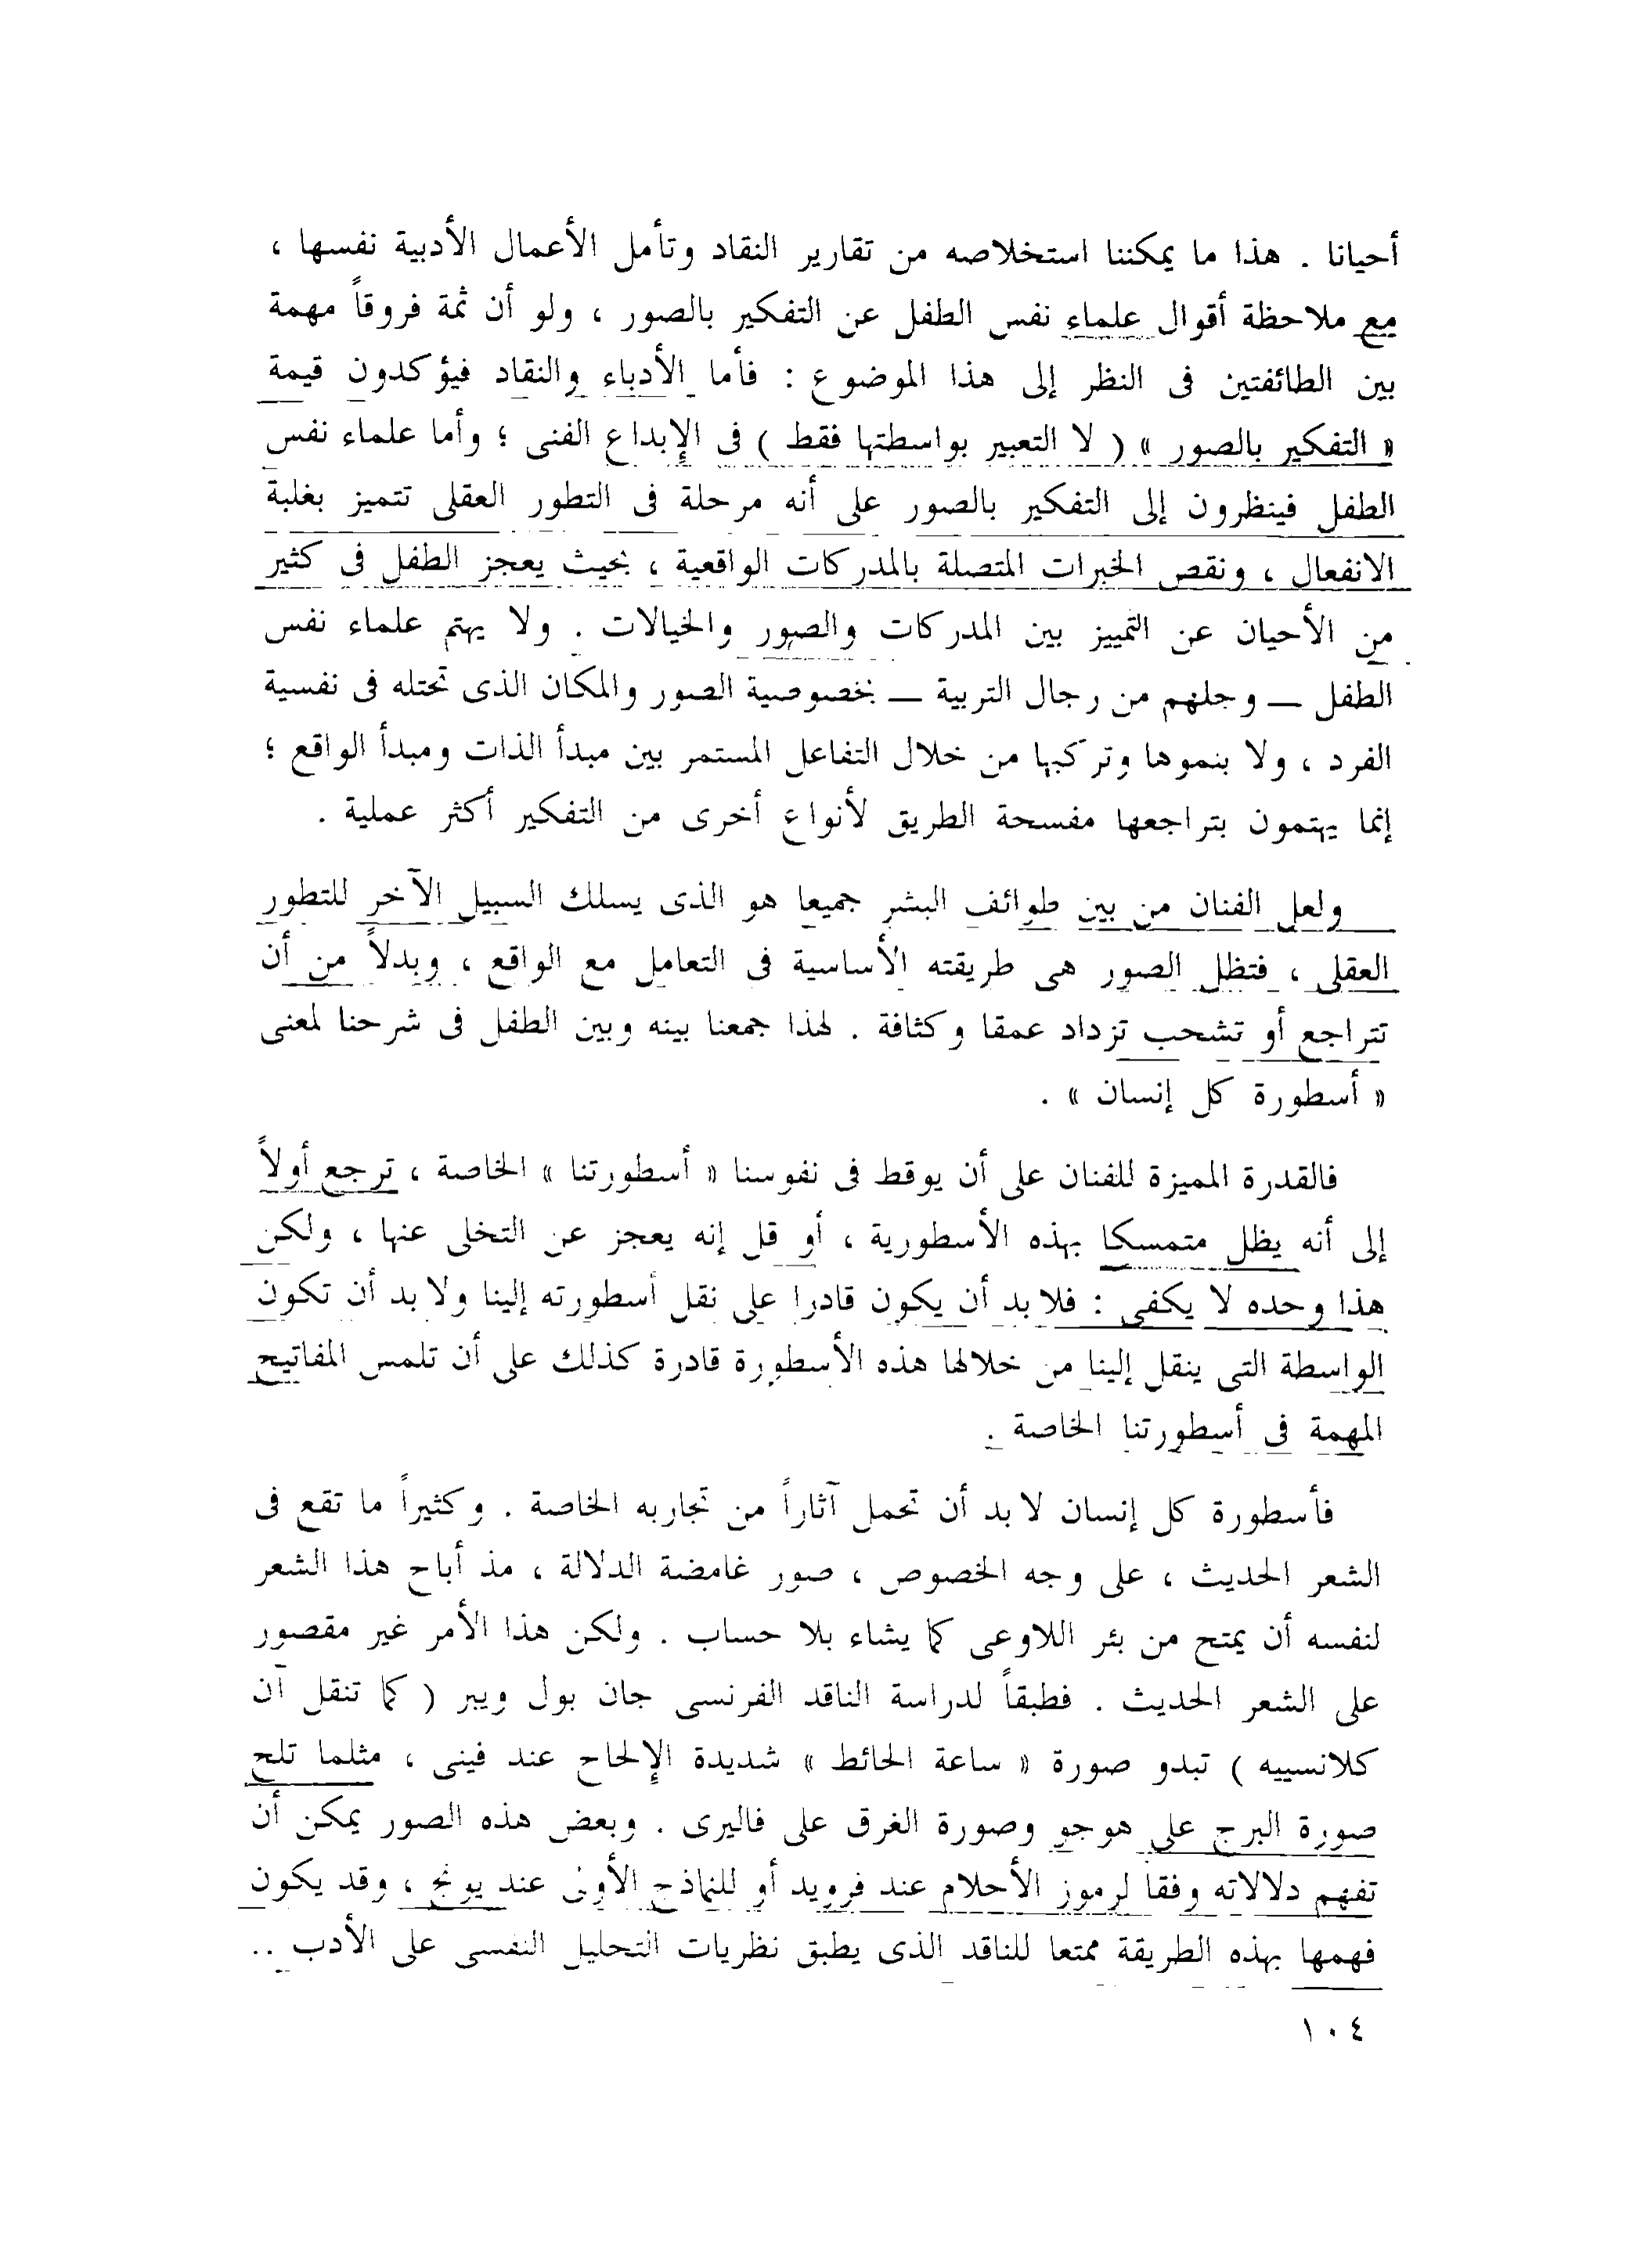 أحيانا . هذا ما يمكننا استخلاصه من تقارير النقاد وتأمل الأعمال الأدبية نفسها ،
مع ملاحظة أقوال علماء نفس الطفل عن التفكير بالصور ، ولو أن ثمة فروقاً مهمة
بين الطائفتين فى النظر إلى هذا الموضوع : فأما الأدباء والنقاد فيؤكدون قيمة
« التفكير بالصور » ( لا التعبير بواسطتها فقط ) فى الإبداع الفنى ؛ وأما علماء نفس
الطفل فينظرون إلى التفكير بالصور على أنه مرحلة فى التطور العقلى تتميز بغلبة
الانفعال ، ونقص الخبرات المتصلة بالمدركات الواقعية ، بحيث يعجز الطفل فى كثير
من الأحيان عن التمييز بين المدركات والصور والخيالات . ولا يهتم علماء نفس
الطفل ــ وجلهم من رجال التربية ــ بخصوصية الصور والمكان الذى تحتله فى نفسية
الفرد ، ولا بنموها وتركبها من خلال التفاعل المستمر بين مبدأ الذات ومبدأ الواقع ؛
إنما يهتمون بتراجعها مفسحة الطريق لأنواع أخرى من التفكير أكثر عملية .
ولعل الفنان من بين طوائف البشر جميعا هو الذى يسلك السبيل الآخر للتطور
العقلى ، فتظل الصور هى طريقته الأساسية فى التعامل مع الواقع ، وبدلاً من أن
تتراجع أو تشحب تزداد عمقا وكثافة . لهذا جمعنا بينه وبين الطفل فى شرحنا لمعنى
« أسطورة كل إنسان » .
فالقدرة المميزة للفنان على أن يوقظ فى نفوسنا « أسطورتنا » الخاصة ، ترجع أولاً
إلى أنه يظل متمسكا بهذه الأسطورية ، أو قل إنه يعجز عن التخلى عنها ، ولكن
هذا وحده لا يكفى : فلابد أن يكون قادرا على نقل أسطورته إلينا ولابد أن تكون
الواسطة التى ينقل إلينا من خلالها هذه الأسطورة قادرة كذلك على أن تلمس المفاتيح
المهمة فى أسطورتنا الخاصة .
فأسطورة كل إنسان لابد أن تحمل آثاراً من تجاربه الخاصة . وكثيراً ما تقع فى
الشعر الحديث ، على وجه الخصوص ، صور غامضة الدلالة ، مذ أباح هذا الشعر
لنفسه أن يمتح من بئر اللاوعى كما يشاء بلا حساب . ولكن هذا الأمر غير مقصور
على الشعر الحديث . فطبقاً لدراسة الناقد الفرنسى جان بول ويبر ( كما تنقل آن
كلانسييه ) تبدو صورة « ساعة الحائط » شديدة الإلحاح عند فينى ، مثلما تلح
صورة البرج على هوجو وصورة الغرق على فاليرى . وبعض هذه الصور يمكن أن
تفهم دلالاته وفقا لرموز الأحلام عند فرويد أو للنماذج الأولى عند يونج ، وقد يكون
فهمها بهذه الطريقة ممتعا للناقد الذى يطبق نظريات التحليل النفسى على الأدب ..
١٠٤